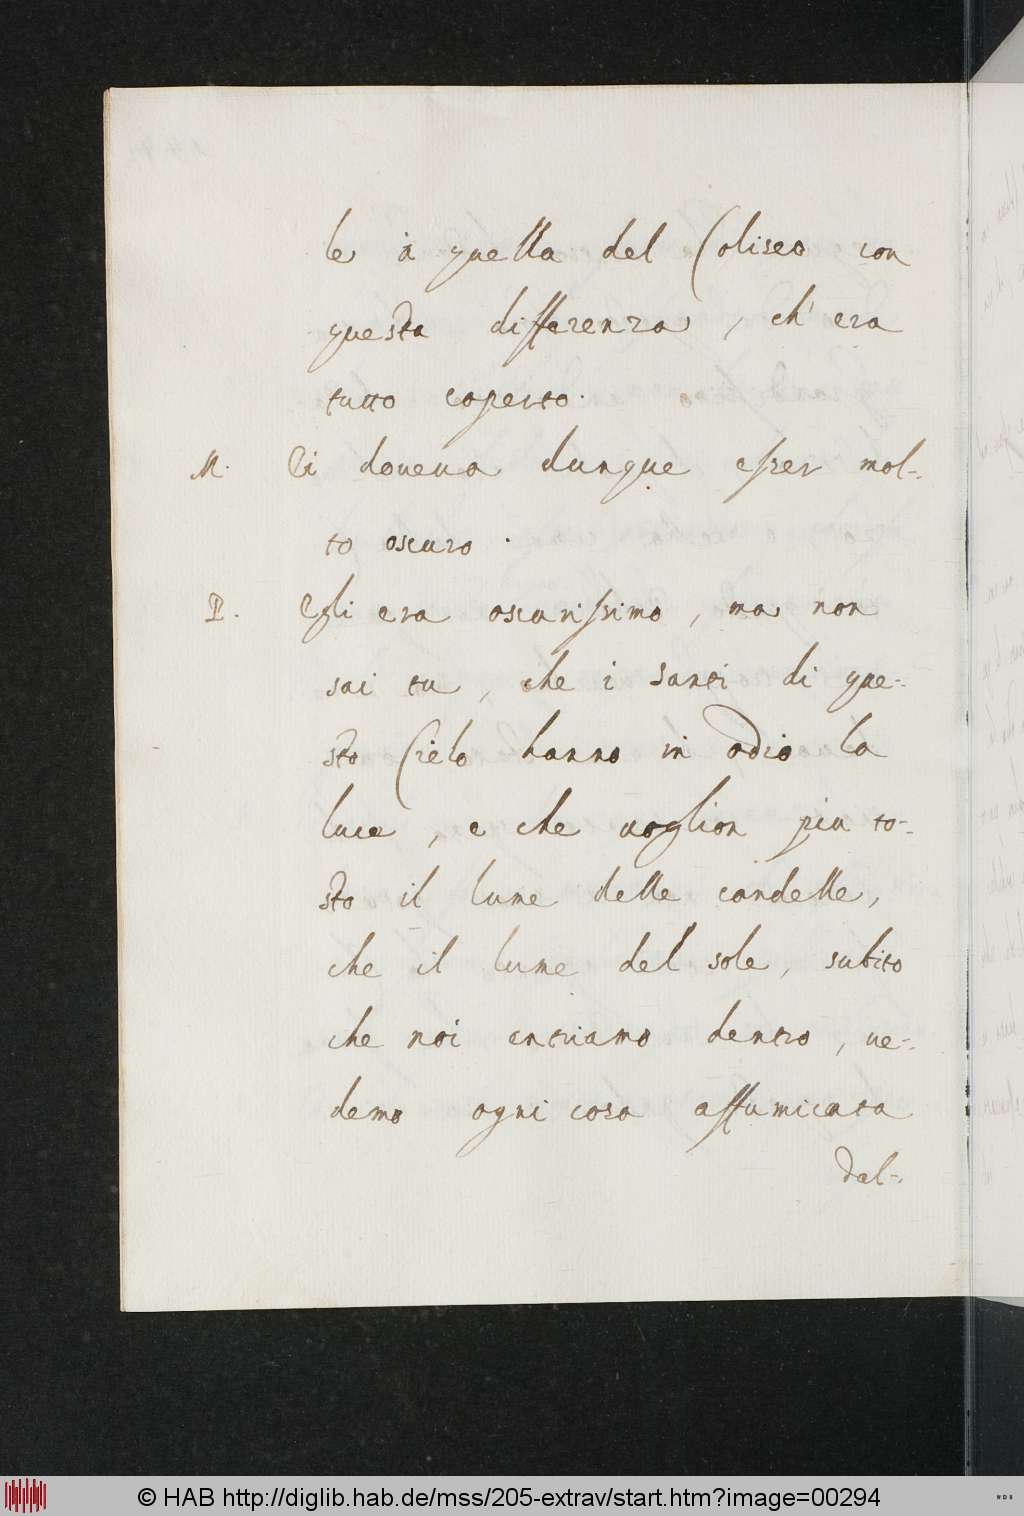 le à quella del Coliseo con
questa differenza, ch' era
tutto coperto.
M. Ci doueua dunque esser mol-
to oscuro.
P. Egli era oscurissimo, ma non
sai tu, che i santi di que-
sto Cielo hanno in odio la
luce, e che uoglion piu to-
sto il lume delle candelle,
che il lume del sole, subito
che noi entriamo dentro, ue-
demo ogni cosa affumicata
dal-
© HAB http://diglib.hab.de/mss/205-extrav/start.htm?image=00294